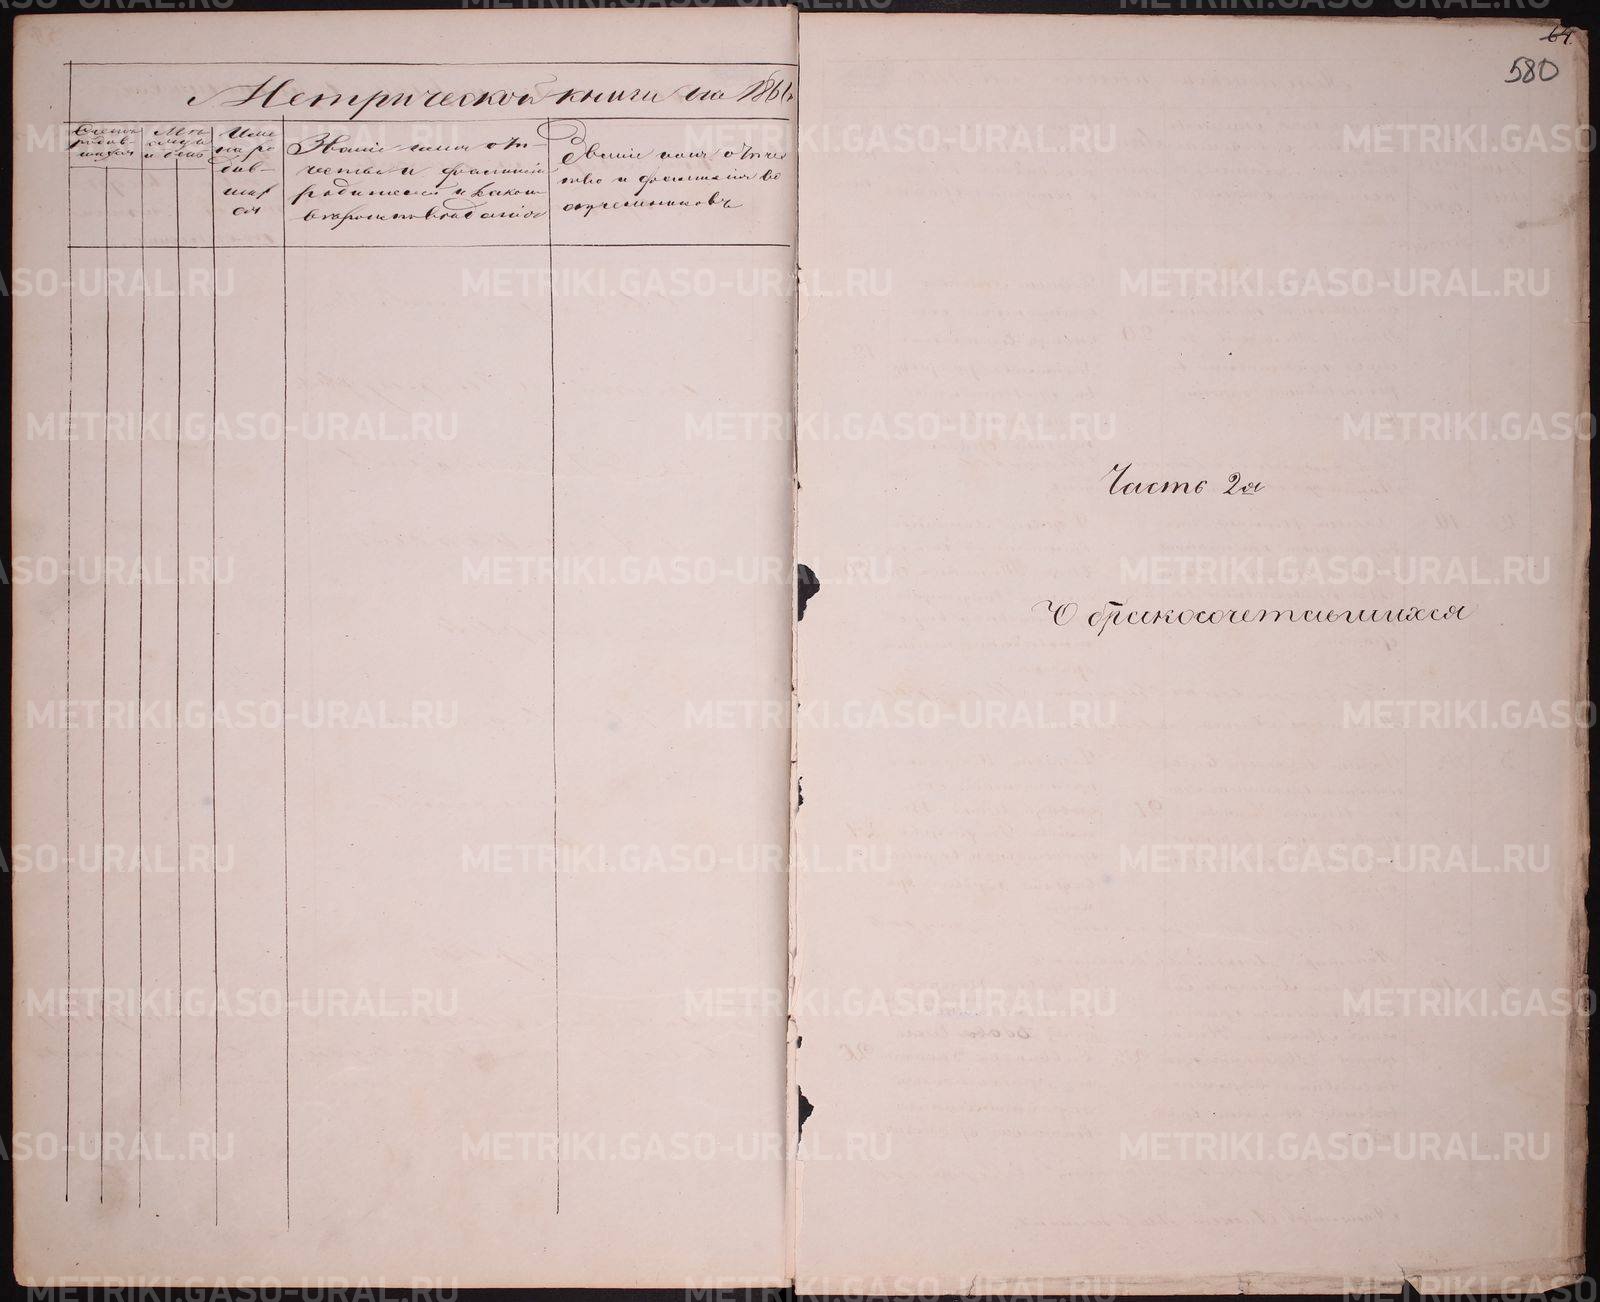 Метрической книги на 1861
Счетъ
родив-
шихся
Мѣ-
сяцъ
и день
Име
на ро
див-
ших
ся
Званіе имя отче-
ство и фамилія
родителей и какого
вѣроисповѣданія
Званіе имя отчес
тво и фамилія во
спріемниковъ
64.
580
Часть 2я
О бракосочетавшихся
METRIKI.GASO-URAL.RU